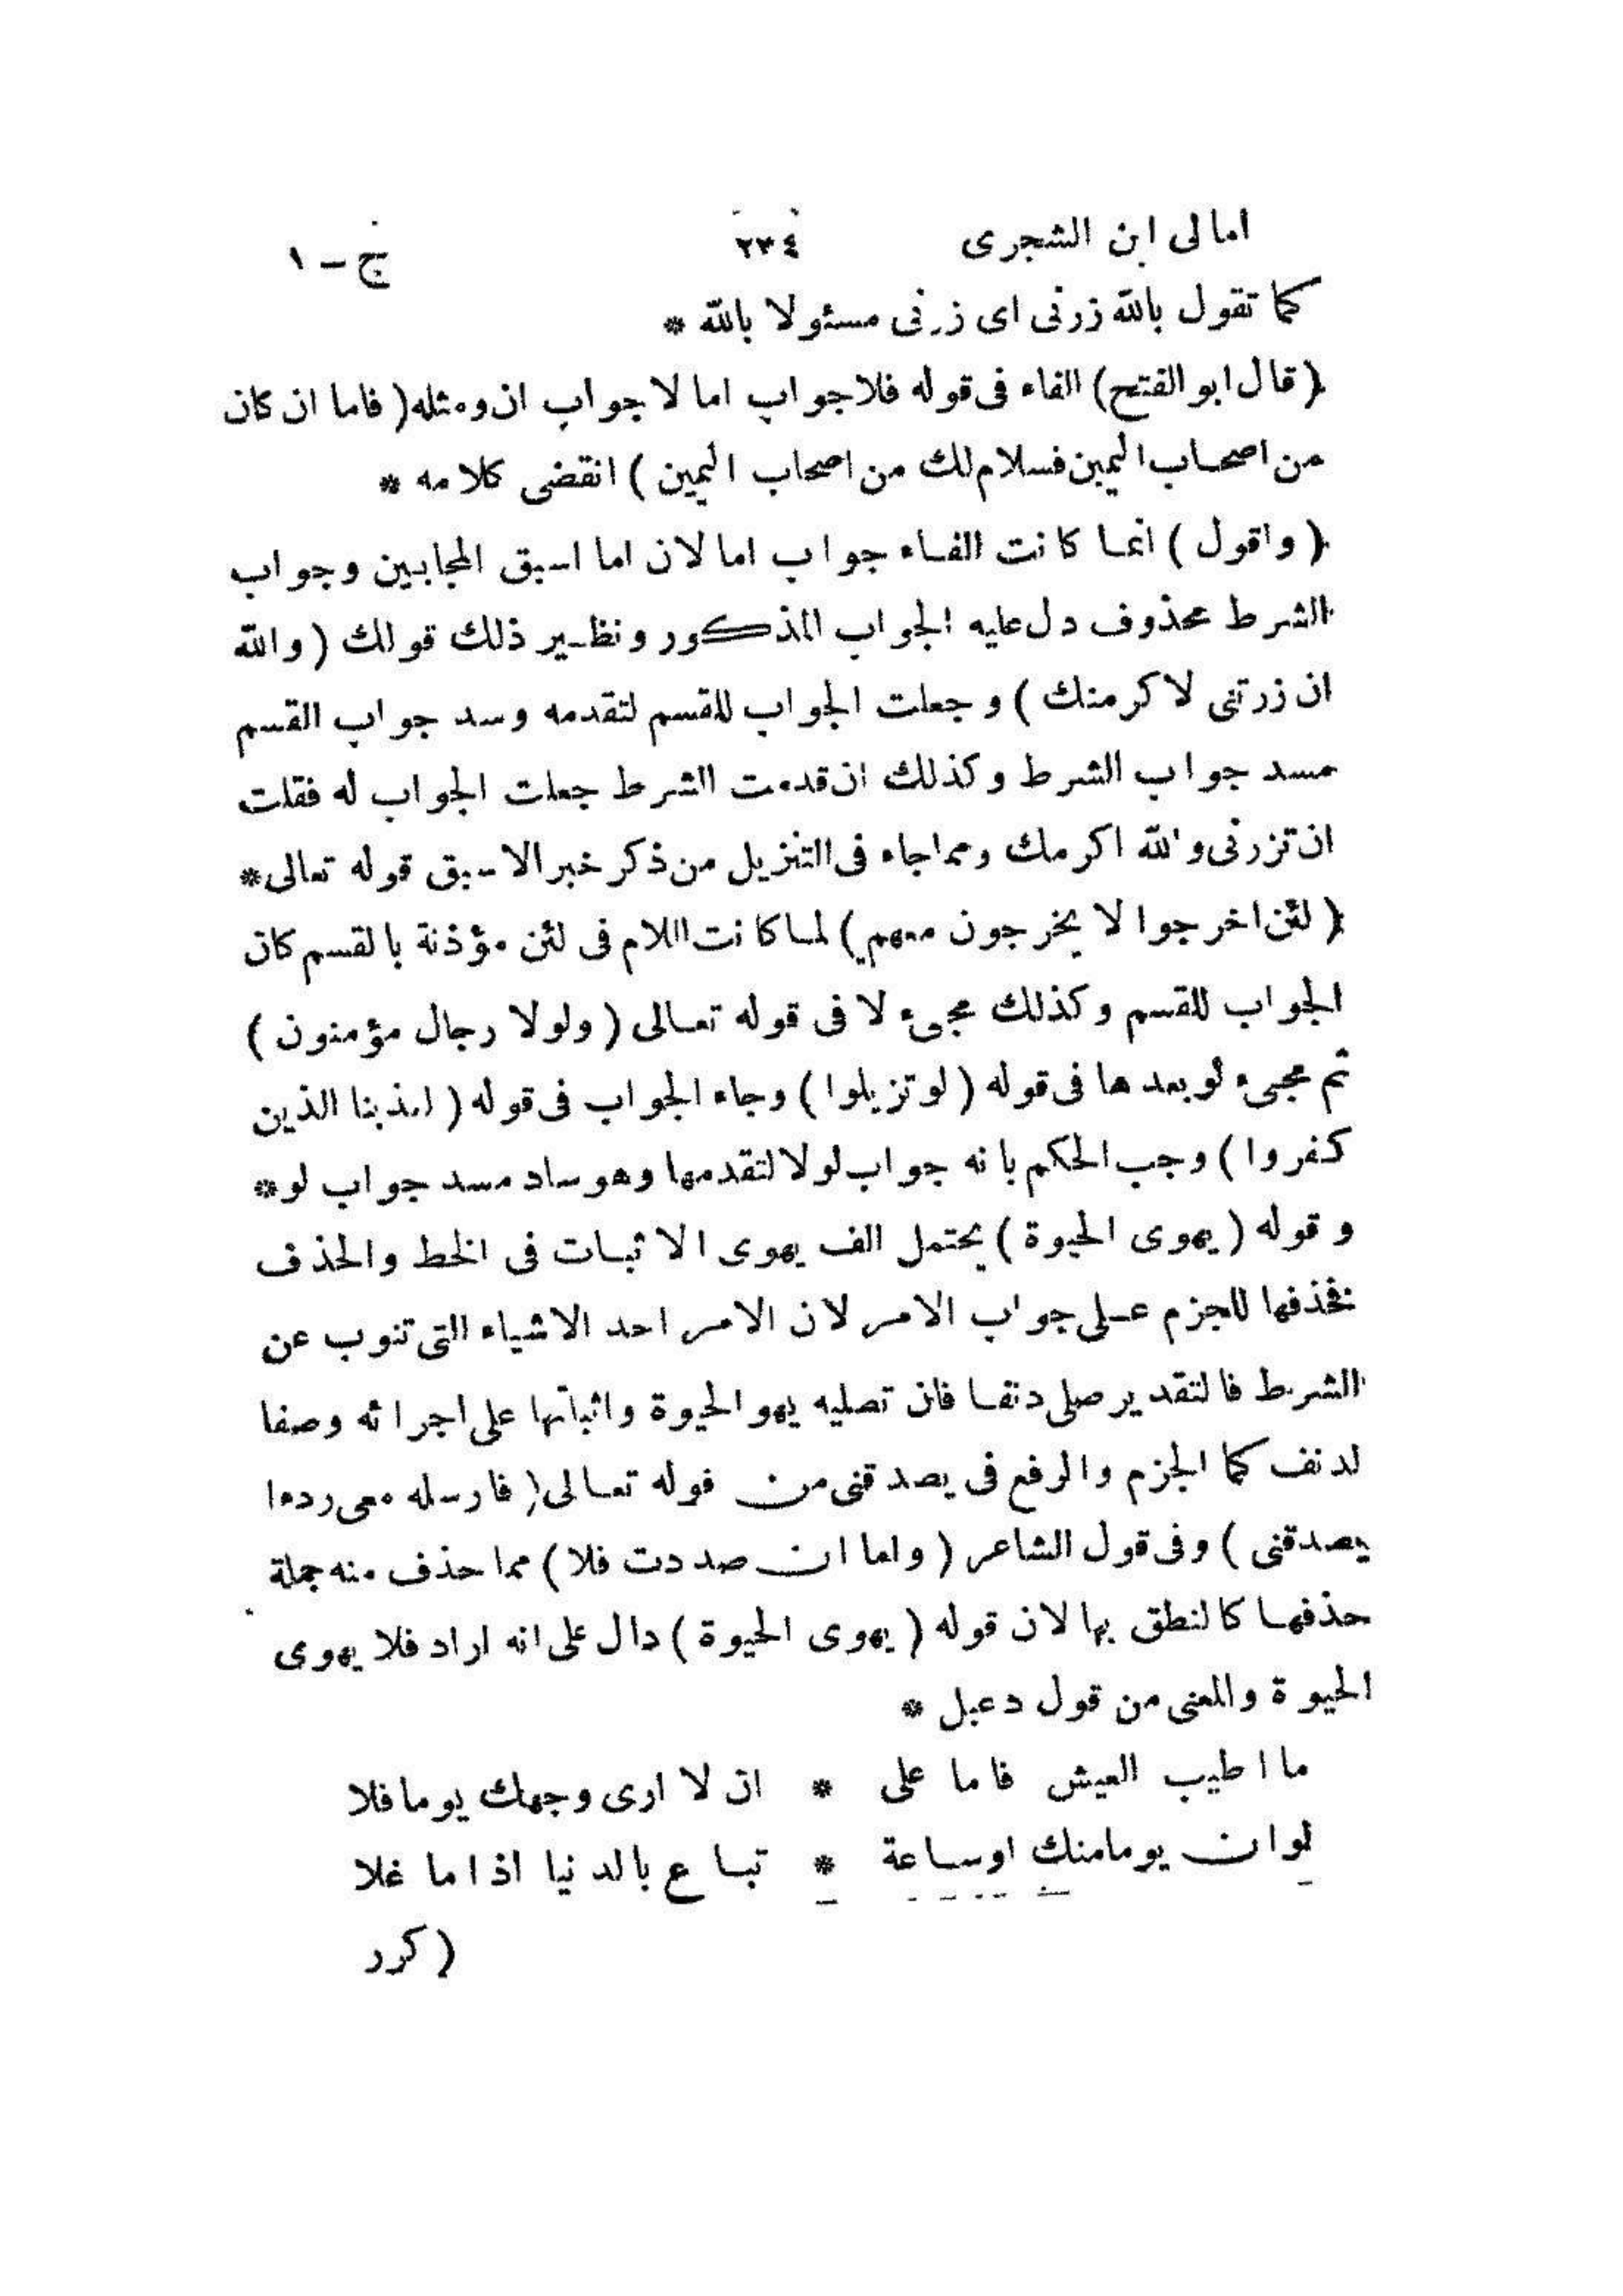 امالى ابن الشجرى ٢٣٤ ج – ١
كما تقول بالله زرنى اى زرنى مسئولا بالله *
( قال ابو الفتح ) الفاء فى قوله فلا جواب اما لا جواب ان ومثله ( فاما ان كان
من اصحاب اليمين فسلام لك من اصحاب اليمين ) انقضى كلامه *
( واقول ) انما كانت الفاء جواب اما لان اما اسبق المجابين وجواب
الشرط محذوف دل عليه الجواب المذكور ونظير ذلك قولك ( والله
ان زرتنى لاكرمنك ) وجعلت الجواب للقسم لتقدمه وسد جواب القسم
مسد جواب الشرط وكذلك ان قدمت الشرط جعلت الجواب له فقلت
ان تزرنى والله اكرمك ومما جاء فى التنزيل من ذكر خبر الاسبق قوله تعالى *
( لئن اخرجوا لا يخرجون معهم ) لما كانت اللام فى لئن مؤذنة بالقسم كان
الجواب للقسم وكذلك مجىء لا فى قوله تعالى ( ولولا رجال مؤمنون )
ثم مجىء لو بعدها فى قوله ( لو تزيلوا ) وجاء الجواب فى قوله ( لعذبنا الذين
كفروا ) وجب الحكم بانه جواب لولا لتقدمها وهو ساد مسد جواب لو *
وقوله ( يهوى الحيوة ) يحتمل الف يهوى الاثبات فى الخط والحذف
فحذفها للجزم على جواب الامر لان الامر احد الاشياء التى تنوب عن
الشرط فالتقدير صلى دنفا فان تصليه يهو الحيوة واثباتها على اجرائه وصفا
لدنف كما الجزم والرفع فى يصدقنى من قوله تعالى ( فارسله معى ردءا
يصدقنى ) وفى قول الشاعر ( واما ان صددت فلا ) مما حذف منه جملة
حذفها كالنطق بها لان قوله ( يهوى الحيوة ) دال على انه اراد فلا يهوى
الحيوة والمعنى من قول دعبل *
ما اطيب العيش فاما على * ان لا ارى وجهك يوما فلا
لو ان يوما منك او ساعة * تباع بالدنيا اذا ما غلا
( كرر